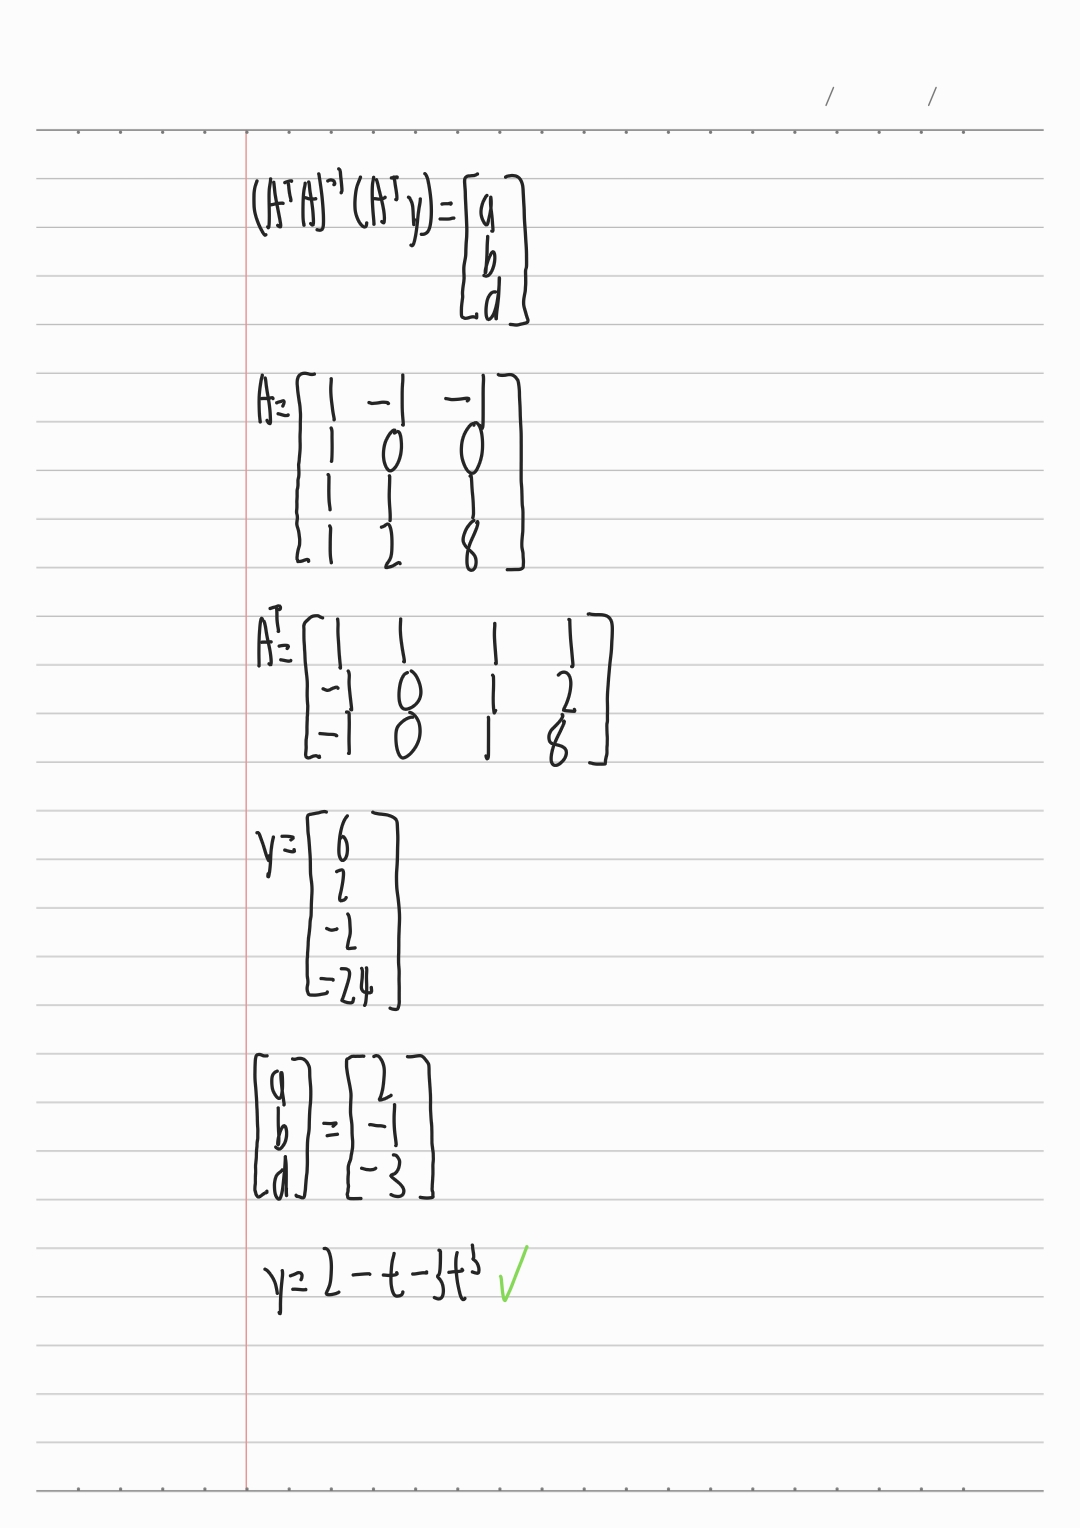 (AᵀA)⁻¹(Aᵀy) = [a
b
d]
A = [1 -1 -1
1 0 0
1 1 1
1 2 8]
Aᵀ = [1 1 1 1
-1 0 1 2
-1 0 1 8]
y = [6
2
-2
-24]
[a
b
d] = [2
-1
-3]
y = 2 - t - 3t³ ✓